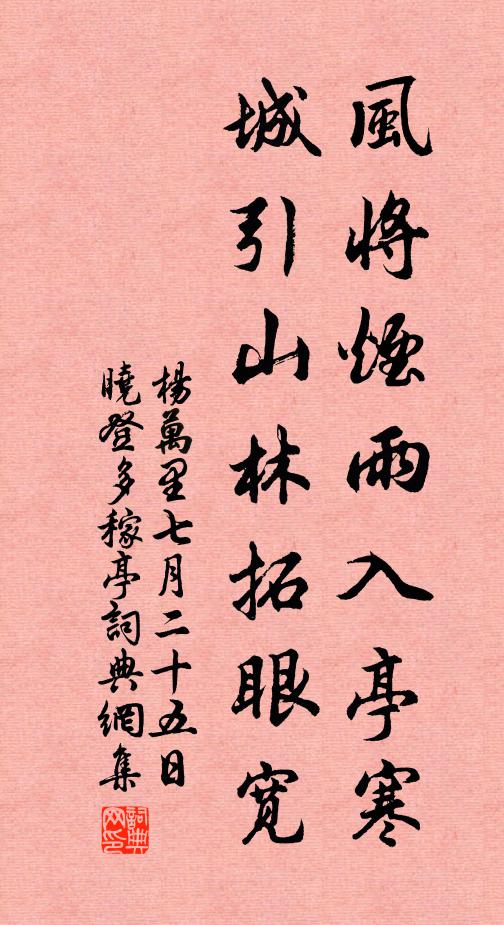 風將煙雨入亭寒
城引山林拓眼寬
楊萬里七月二十五日
曉登多稼亭詞典網集
詞典網印